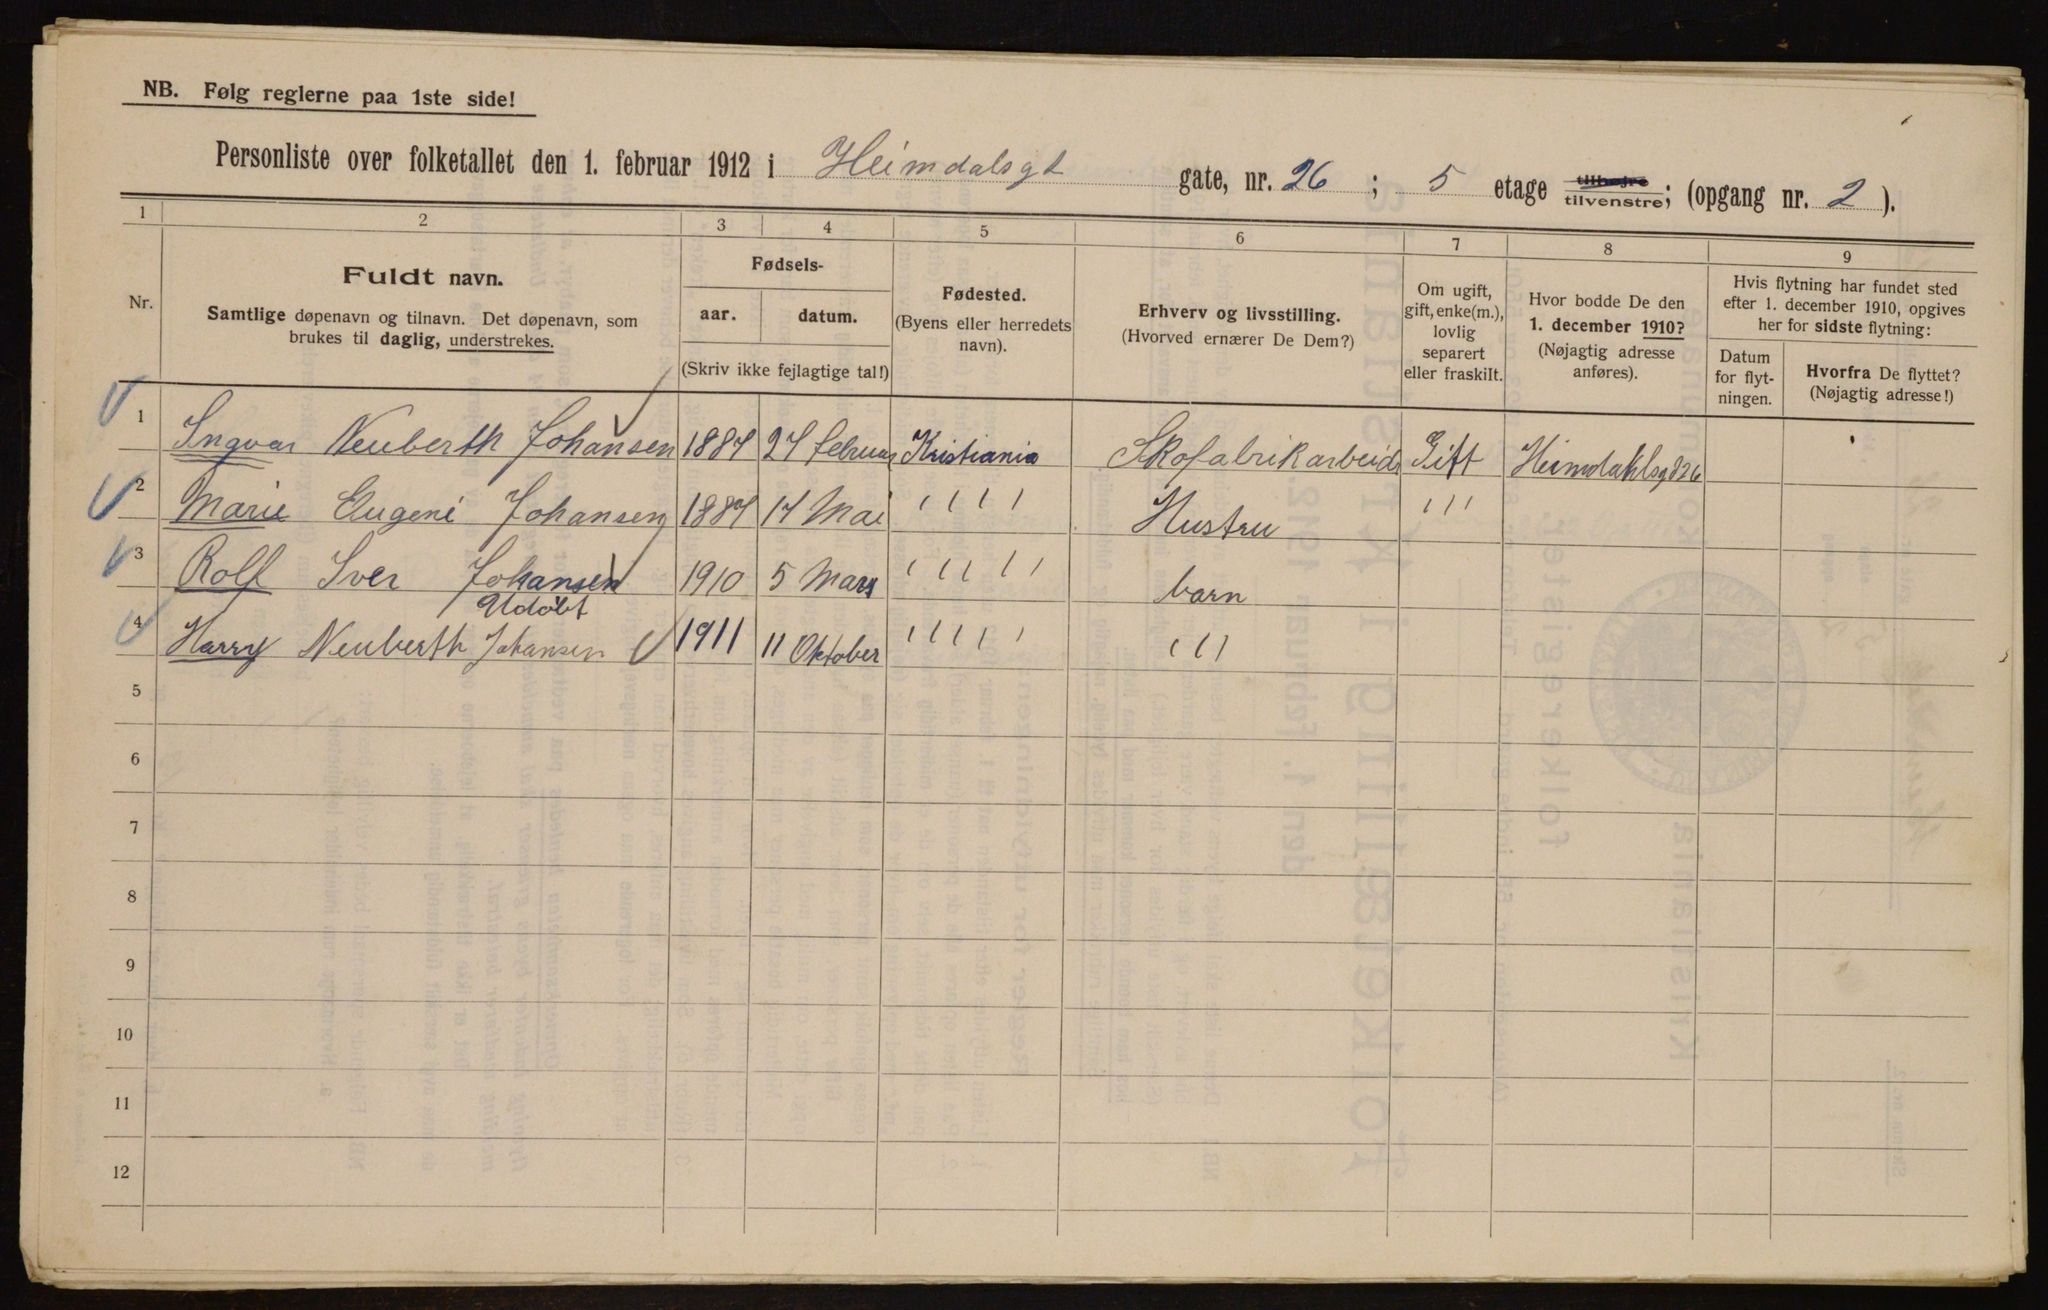 NB. Følg reglerne paa 1ste side!
Personliste over folketallet den 1. februar 1912 i Heimdalsgt gate, nr. 26 ; 5 etage tilhøjre tilvenstre; (opgang nr. 2 ).
1 2 3 4 5 6 7 8 9
Nr.
Fuldt navn.
Samtlige døpenavn og tilnavn. Det døpenavn, som
brukes til daglig, understrekes.
Fødsels-
aar. datum.
(Skriv ikke fejlagtige tal!)
Fødested.
(Byens eller herredets
navn).
Erhverv og livsstilling.
(Hvorved ernærer De Dem?)
Om ugift,
gift, enke(m.),
lovlig
separert
eller fraskilt.
Hvor bodde De den
1. december 1910?
(Nøjagtig adresse
anføres).
Hvis flytning har fundet sted
efter 1. december 1910, opgives
her for sidste flytning:
Datum
for flyt-
ningen.
Hvorfra De flyttet?
(Nøjagtig adresse!)
1 Ingvar Neuberth Johansen 1887 27 februar Kristiania Skofabrikarbeid Gift Heimdahlsgd 26
2 Marie Eugeni Johansen 1887 17 Mai ' ' ' ' ' Hustru ' ' '
3 Rolf Iver Johansen 1910 5 Mars ' ' ' ' ' barn
Udöbt
4 Harry Neuberth Johansen 1911 11 Oktober ' ' ' ' ' ' ' '
5
6
7
8
9
10
11
12